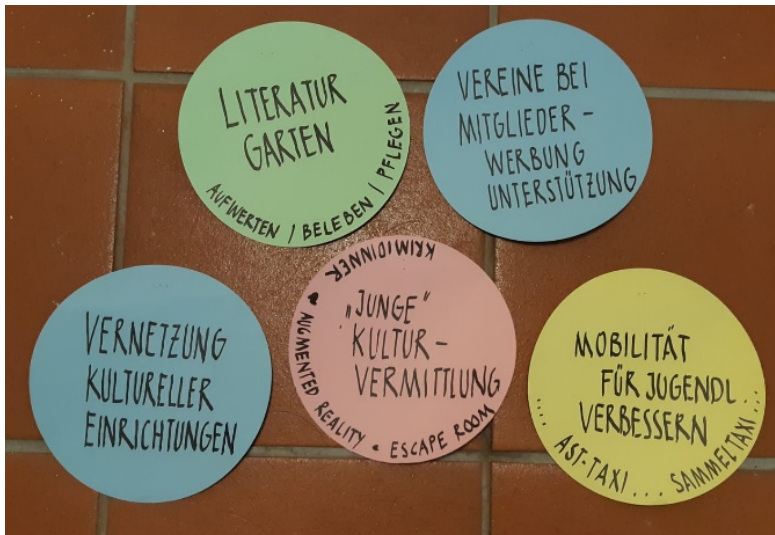 LITERATUR
GARTEN
AUFWERTEN / BELEBEN / PFLEGEN
VEREINE BEI
MITGLIEDER-
WERBUNG
UNTERSTÜTZUNG
VERNETZUNG
KULTURELLER
EINRICHTUNGEN
„JUNGE“
KULTUR-
VERMITTLUNG
KRIMIDINNER
AUGMENTED REALITY • ESCAPE ROOM
MOBILITÄT
FÜR JUGENDL.
VERBESSERN
.... AST-TAXI... SAMMELTAXI...